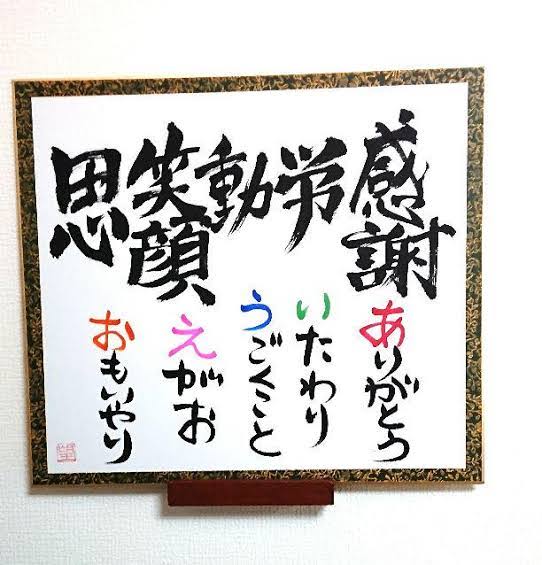 感謝
労
動
笑顔
思
ありがとう
いたわり
うごくこと
えがお
おもいやり